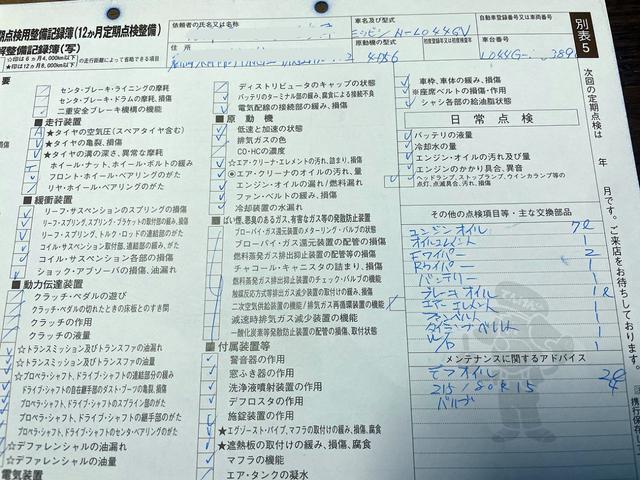 期点検用整備記録簿(12か月定期点検整備)
解整備記録簿(写)
☆印は6ヵ月4,000km以下
★印は12ヵ月8,000km以下
の走行距離によって省略できる項目
依頼者の氏名又は名称
住所
車名及び型式
ミツビシ H-L044GV
原動機の型式
4D56
自動車登録番号又は車両番号
車台番号
L044G-
別表5
要
センタ・ブレーキ・ライニングの摩耗
センタ・ブレーキ・ドラムの摩耗、損傷
二重安全ブレーキ機構の機能
■走行装置
★タイヤの空気圧(スペアタイヤ含む)
★タイヤの亀裂、損傷
★タイヤの溝の深さ、異常な摩耗
ホイール・ナット、ホイール・ボルトの緩み
フロント・ホイール・ベアリングのがた
リヤ・ホイール・ベアリングのがた
■緩衝装置
リーフ・サスペンションのスプリングの損傷
リーフ・スプリング、スプリング・ブラケットの取付部の緩み、損傷
リーフ・スプリング、トルク・ロッドの連結部のがた
コイル・サスペンション取付部、連結部の緩み、がた
コイル・サスペンション各部の損傷
ショック・アブソーバの損傷、油漏れ
■動力伝達装置
クラッチ・ペダルの遊び
クラッチ・ペダルの切れたときの床板とのすき間
クラッチの作用
クラッチの液量
☆トランスミッション及びトランスファの油漏れ
☆トランスミッション及びトランスファの油量
☆プロペラ・シャフト、ドライブ・シャフトの連結部分の緩み
ドライブ・シャフトの自在継手部のダスト・ブーツの亀裂、損傷
プロペラ・シャフト、ドライブ・シャフトのスプライン部のがた
プロペラ・シャフト、ドライブ・シャフトの継手部のがた
プロペラ・シャフト、ドライブ・シャフトのセンタ・ベアリングのがた
☆デファレンシャルの油漏れ
☆デファレンシャルの油量
■電気装置
ディストリビュータのキャップの状態
バッテリのターミナル部の緩み、腐食による接続不良
電気配線の接続部の緩み、損傷
■原動機
低速と加速の状態
排気ガスの色
CO・HCの濃度
☆エア・クリーナ・エレメントの汚れ、詰まり、損傷
エア・クリーナのオイルの汚れ、量
エンジン・オイルの漏れ/燃料漏れ
ファン・ベルトの緩み、損傷
冷却装置の水漏れ
■ばい煙、悪臭のあるガス、有害なガス等の発散防止装置
ブローバイ・ガス還元装置のメターリング・バルブの状態
ブローバイ・ガス還元装置の配管の損傷
燃料蒸発ガス排出抑止装置の配管等の損傷
チャコール・キャニスタの詰まり、損傷
燃料蒸発ガス排出抑止装置のチェック・バルブの機能
触媒反応方式等排出ガス減少装置の取付けの緩み、損傷
二次空気供給装置の機能/排気ガス再循環装置の機能
減速時排気ガス減少装置の機能
一酸化炭素等発散防止装置の配管の損傷、取付状態
■付属装置等
警音器の作用
窓ふき器の作用
洗浄液噴射装置の作用
デフロスタの作用
施錠装置の作用
★エグゾースト・パイプ、マフラの取付けの緩み、損傷、腐食
★遮熱板の取付けの緩み、損傷、腐食
マフラの機能
エア・タンクの凝水
車枠、車体の緩み、損傷
※座席ベルトの損傷・作用
シャシ各部の給油脂状態
日常点検
バッテリの液量
冷却水の量
エンジン・オイルの汚れ及び量
エンジンのかかり具合、異音
ヘッドランプ、ストップランプ、ウインカランプ等の
点灯、点滅具合、汚れ、損傷
その他の点検項目等・主な交換部品
エンジンオイル 7ℓ
オイルエレメント 1
Fワイパー 2
Rワイパー 1
バッテリー 1
ブレーキオイル 1ℓ
エアーエレメント 1
ファンベルト 1
タイミングベルト 1
W/P 1
メンテナンスに関するアドバイス
デフオイル
215/80R15
バルブ
次回の定期点検は 年 月です。ご来店をお待ちしております。